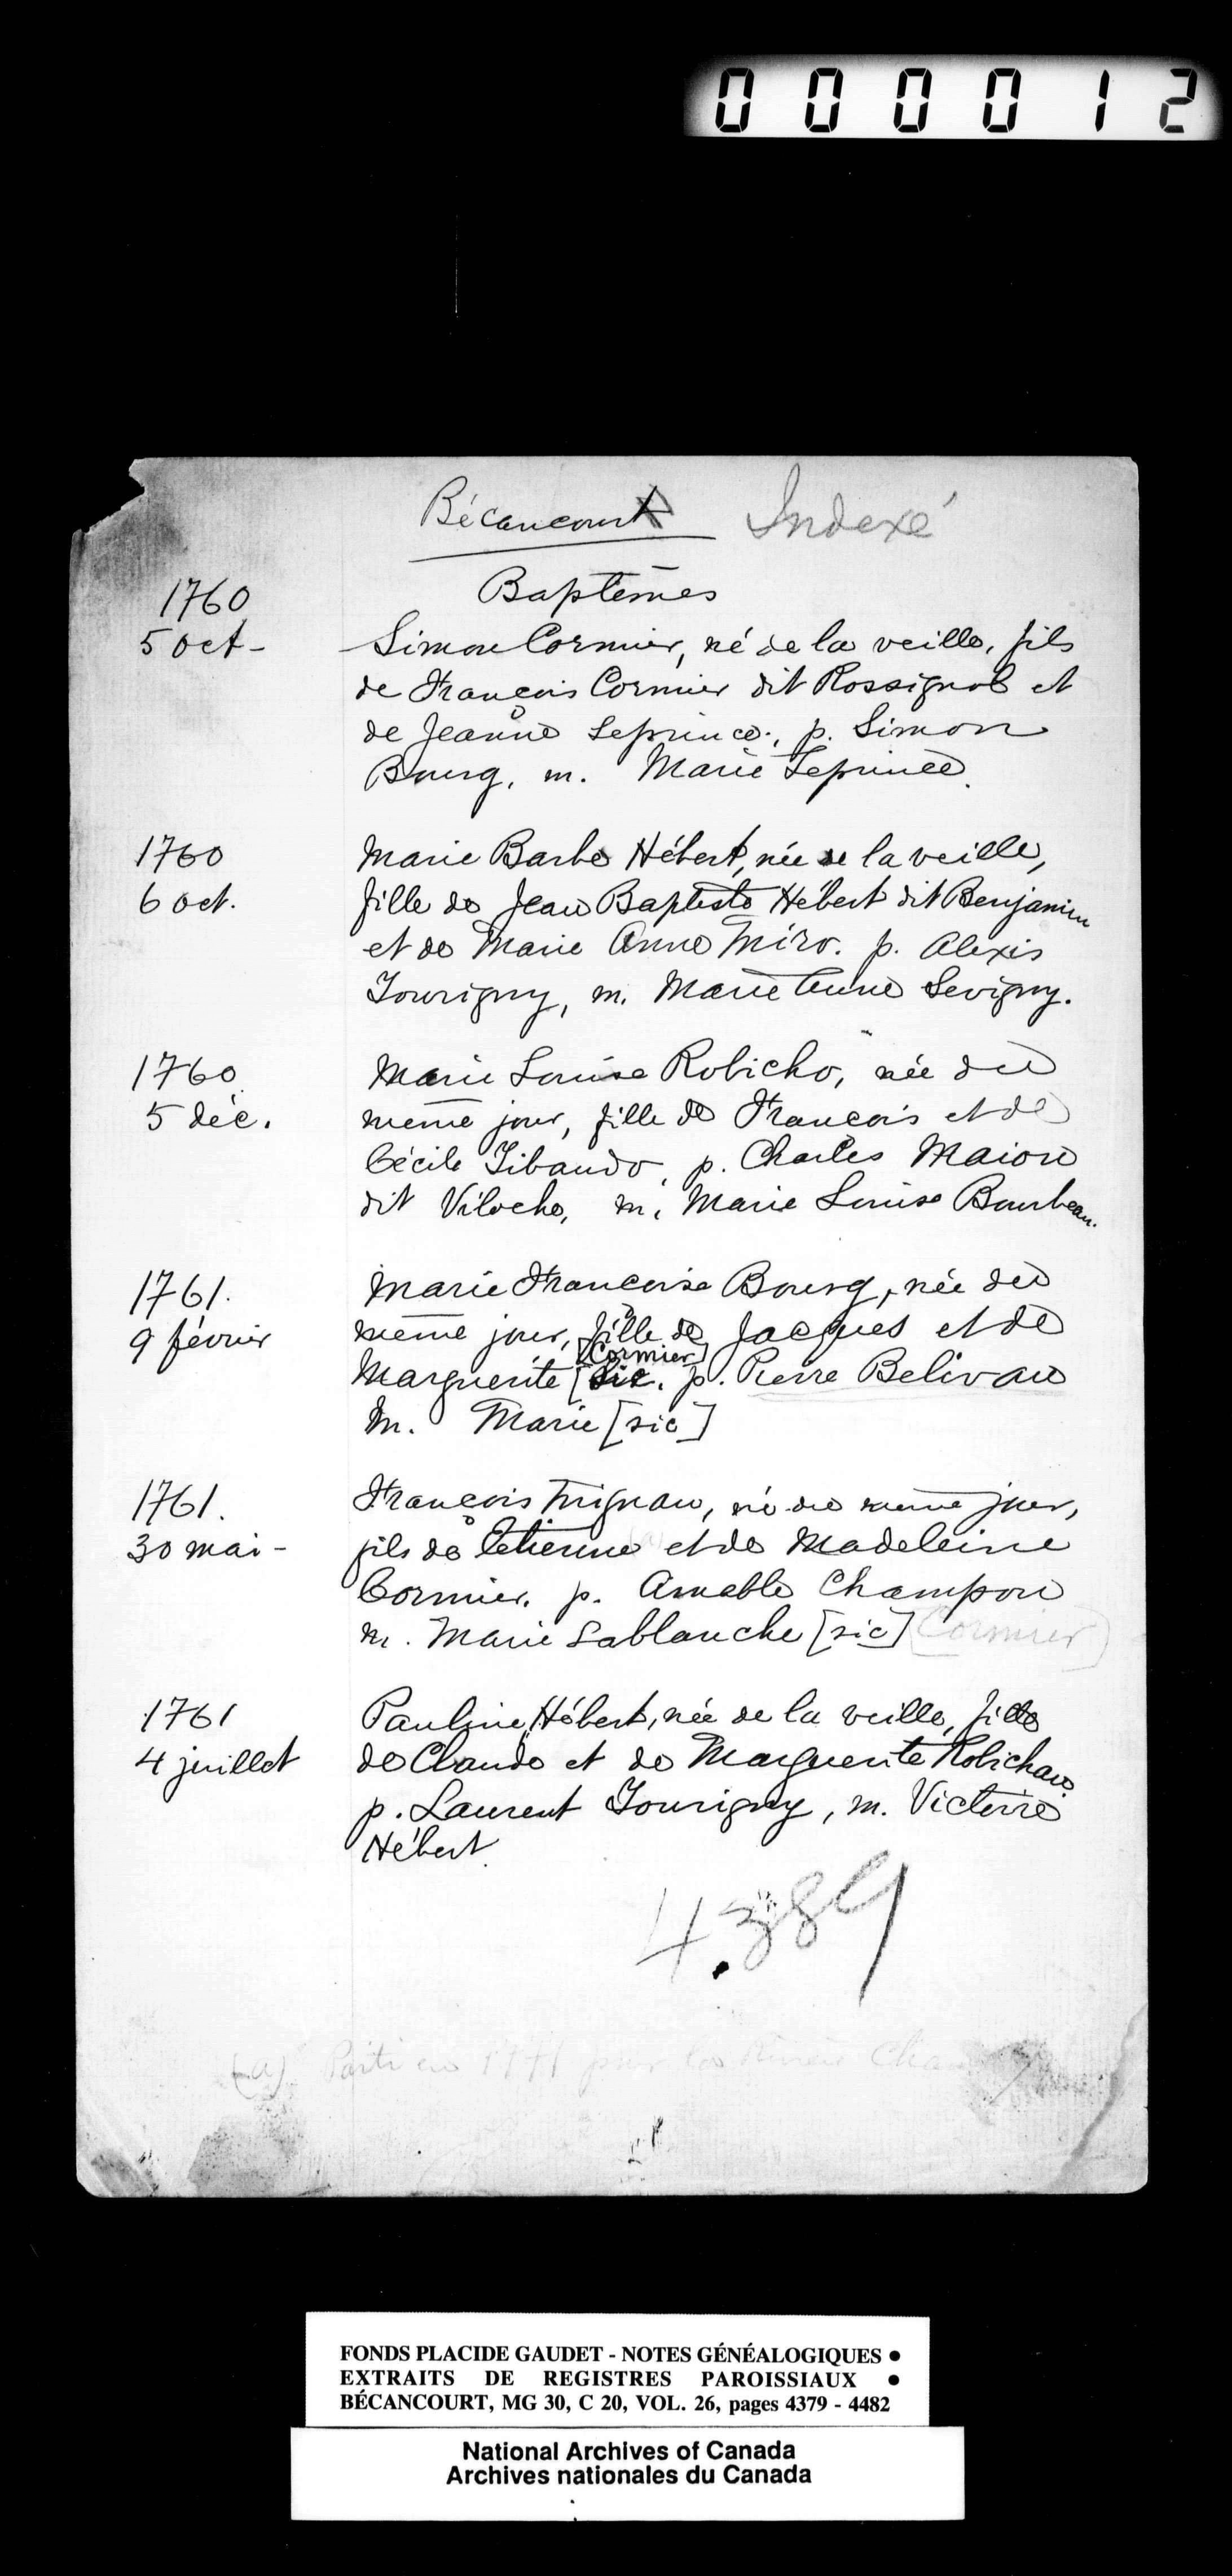 000012
Bécancourt Indexé
Baptêmes
1760
5 oct - Simon Cormier, né de la veille, fils
de François Cormier dit Rossignol et
de Jeanne Leprince, p. Simon
Bourg, m. Marie Leprince.
1760 Marie Barbe Hébert, née de la veille,
6 oct. fille de Jean Baptiste Hébert dit Benjamin
et de Marie Anne Miro. p. Alexis
Tourigny, m. Marie Anne Sevigny.
1760 Marie Louise Robicho, née du
5 déc. même jour, fille de François et de
Cécile Tibaudo, p. Charles Maion
dit Viloche, m. Marie Louise Bourbeau.
1761. Marie Francoise Bourg, née du
9 février même jour, fille de Jacques et de
[Cormier]
Marguerite [sic. p. Pierre Belivau
m. Marie [sic]
1761. François Mignau, né du même jour,
30 mai - fils de Etienne (a) et de Madeleine
Cormier. p. Amable Champou
m. Marie Lablanche [sic] [Cormier]
1761 Pauline Hébert, née de la veille, fille
4 juillet de Claude et de Marguerite Robichau
p. Laurent Tourigny, m. Victoire
Hébert.
4.389
(a) Parti en 1771 pour la Rivière
FONDS PLACIDE GAUDET - NOTES GÉNÉALOGIQUES •
EXTRAITS DE REGISTRES PAROISSIAUX •
BÉCANCOURT, MG 30, C 20, VOL. 26, pages 4379 - 4482
National Archives of Canada
Archives nationales du Canada